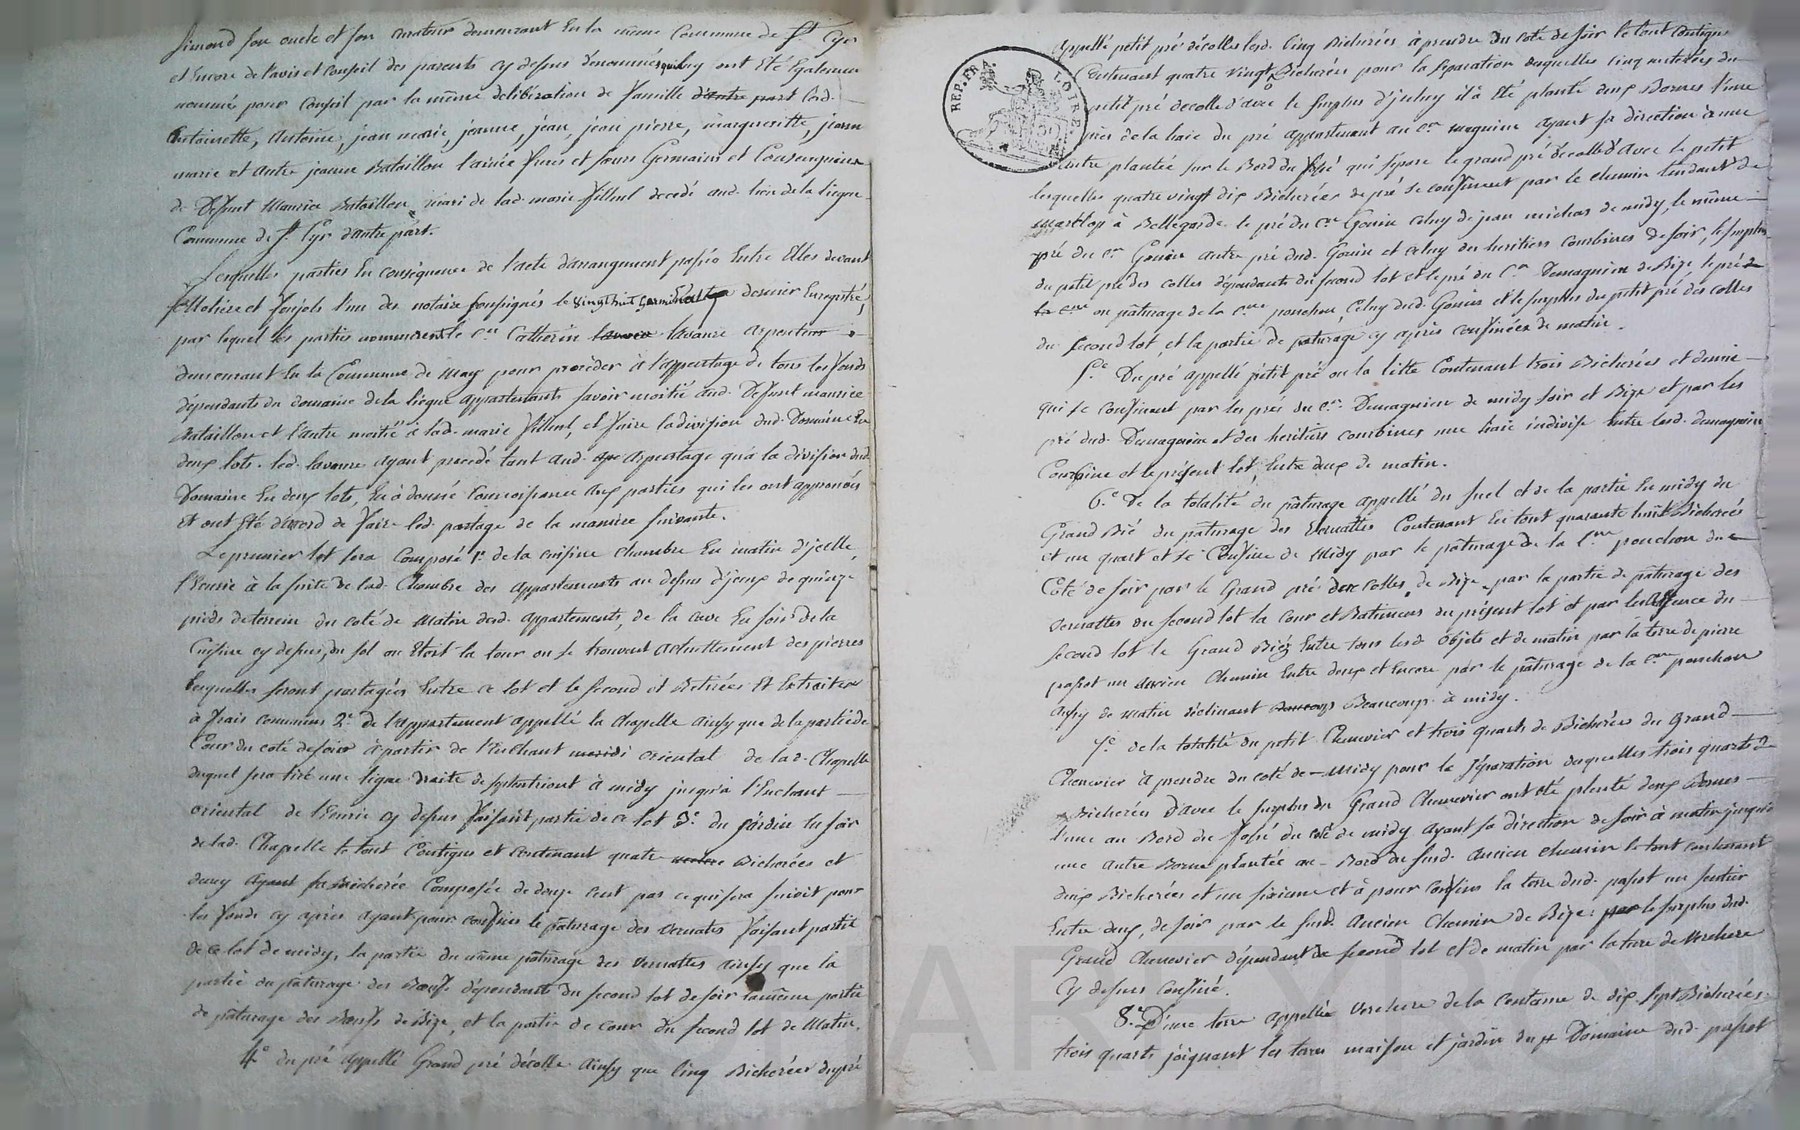 Simond son oncle et son curateur demeurant en la même Commune de St Cyr
et encore de l'avis et conseil des parents cy dessus dénommés qui luy ont été également
nommés pour conseil par la même délibération de famille d'autre part lad.
antoinette, antoine, jean marie, jeanne, jean, jean pierre, margueritte, jeanne
marie et autre jeanne Bataillon l'ainée frères et sœurs Germains et Consanguins
de Défunt Maurice Bataillon mari de lad. marie filleul décédé aud. lieu de la liegue
Commune de St Cyr d'autre part.
Lesquelles parties en conséquence de l'acte d'arrangement passé entre elles devant
Moliere et Joujols l'un des notaires soussignés le vingt huit germinal dernier Enregistré,
par lequel les parties nommerent le Cen Catherin lavanre arpenteur
demeurant en la Commune de may pour procéder à l'apparentage de tous les fonds
dépendants du domaine de la liegue appartenants savoir moitié aud. Défunt maurice
Bataillon et l'autre moitié à lad. marie filleul, et faire la division dud. Domaine en
deux lots. led. lavanre ayant procédé tant aud. arpentage qu'à la division dud.
Domaine en deux lots, en a donné connoissance aux parties qui les ont approuvés
et ont été d'accord de faire led. partage de la manière suivante.
Le premier lot sera composé 1° de la cuisine chambre en matin d'icelle,
l'Ecurie à la suite de lad. Chambre des appartements au dessus d'iceux de quinze
pieds de terrein du coté de Matin dud. appartements, de la cave en soir de la
Cuisine cy dessus, du sol ou étoit la tour ou se trouvent actuellement des pierres
lesquelles seront partagées entre ce lot et le second et retirées et extraites
à frais communs 2° de l'appartement appellé la chapelle ainsy que de la partie de
Cour du coté de soir à partir de l'Enchant meridi oriental de lad. Chapelle
duquel sera tiré une ligne droite de septentrion à midy jusqu'à l'Enchant
oriental de l'Ecurie cy dessus faisant partie de ce lot 3° du jardin en soir
de lad. Chapelle le tout Contigus et contenant quatre Bicherées et
demy ayant sa Bicherée Composée de douze cent pas ce qui sera suivit pour
les fonds cy après ayant pour confins le pâturage des vernattes faisant partie
de ce lot de midy, la partie du même pâturage des vernattes ainsy que la
partie du pâturage des Bœufs dépendants du second lot de soir la même partie
de pâturage des Bœufs de Bize, et la partie de cour du second lot de Matin.
4° du pré appellé Grand pré décolle ainsy que cinq Bicherées du pré
REP. FRA. LOIRE.
appellé petit pré décolles lesd. Cinq Bicherées à prendre du coté de soir le tout contigus
Contenant quatre vingt Bicherées pour la separation desquelles cinq metérées du
petit pré décolle d'avec le surplus d'iceluy il a été planté deux Bornes l'une
près de la haie du pré appartenant au Cen maguin ayant sa direction à une
autre plantée sur le Bord du fossé qui sépare le grand pré décolle d'avec le petit
lesquelles quatre vingt dix Bicherées de pré se confinent par le chemin tendant de
Marclop à Bellegarde le pré du Cen Gouin celuy de jean michas de midy, le même
pré du Cen Gouin autre pré dud. Gouin et celuy des heritiers combines de soir, le surplus
du petit pré des colles dépendants du second lot et le pré du Cen Demagnien de Bize, le pré
en pâturage de la Cne ponchon, celuy dud. Gouin et le surplus du petit pré des colles
du second lot, et la partie de pâturage cy après confinées de matin.
5° Du pré appellé petit pré ou la litte contenant trois Bicherées et demie
qui se confinent par les prés du Cen Demagnien de midy soir et Bize et par les
pré dud. Demagnien et des heritiers combines une haie indivise entre lesd. demagnien
Combine et le présent lot, entre deux de matin.
6° De la totalité du pâturage appellé du suel et de la partie en midy du
Grand Bié du pâturage des vernattes Contenant en tout quarante huit Bicherées
et un quart et se Confine de Midy par le pâturage de la Cne ponchon du
Coté de soir par le Grand pré des colles, de Bize par la partie de pâturage des
vernattes du second lot la cour et Batiments du présent lot et par les du
second lot le Grand Biéz entre tous lesd. objets et de matin par la terre de pierre
passot un ancien chemin entre deux et encore par le pâturage de la Cne ponchon
aussy de matin déclinant Beaucoup à midy.
7° de la totalité du petit Chenevier et trois quarts de Bicherées du Grand
Chenevier à prendre du coté de Midy pour la séparation desquelles trois quarts de
Bicherées d'avec le surplus du Grand Chenevier ont été planté deux Bornes
l'une au Bord du fossé du coté de midy ayant sa direction de soir à matin jusqu'à
une autre Borne plantée au Bord du susd. ancien chemin le tout contenant
deux Bicherées et un sixieme et a pour confins la terre dud. passot un sentier
entre deux, de soir par le susd. ancien Chemin de Bize le surplus dud.
Grand Chenevier dépendant du second lot et de matin par la terre de Verchere
cy dessus confiné.
8° D'une terre appellée verchere de la contenue de dix sept Bicherées
trois quarts joignant les terres maison et jardin du Domaine dud. passot